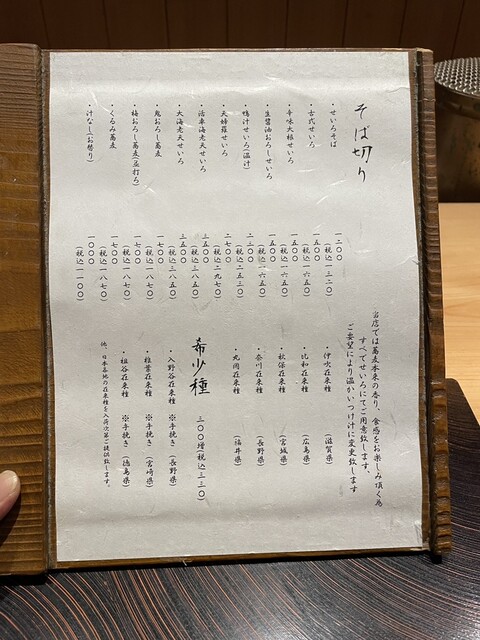 そば切り
・せいろそば 一二〇〇
(税込一三二〇)
・古式せいろ 一五〇〇
(税込一六五〇)
・辛味大根せいろ 一五〇〇
(税込一六五〇)
・生醤油おろしせいろ 一五〇〇
(税込一六五〇)
・鴨汁せいろ(温汁) 二三〇〇
(税込二五三〇)
・天婦羅せいろ 二七〇〇
(税込二九七〇)
・活車海老天せいろ 三五〇〇
(税込三八五〇)
・大海老天せいろ 三五〇〇
(税込三八五〇)
・鬼おろし蕎麦 一七〇〇
(税込一八七〇)
・梅おろし蕎麦(並打ち) 一七〇〇
(税込一八七〇)
・くるみ蕎麦 一七〇〇
(税込一八七〇)
・汁なし(お替り) 一〇〇〇
(税込一一〇〇)
当店では蕎麦本来の香り、食感をお楽しみ頂く為
すべてせいろにてご用意致します。
ご要望により温かいつけ汁に変更致します
・伊吹在来種 (滋賀県)
・比和在来種 (広島県)
・秋保在来種 (宮城県)
・奈川在来種 (長野県)
・丸岡在来種 (福井県)
希少種 三〇〇増税込三三〇
・入野谷在来種 ※手挽き (長野県)
・椎葉在来種 ※手挽き (宮崎県)
・祖谷在来種 ※手挽き (徳島県)
他、日本各地の在来種を入荷次第ご提供致します。